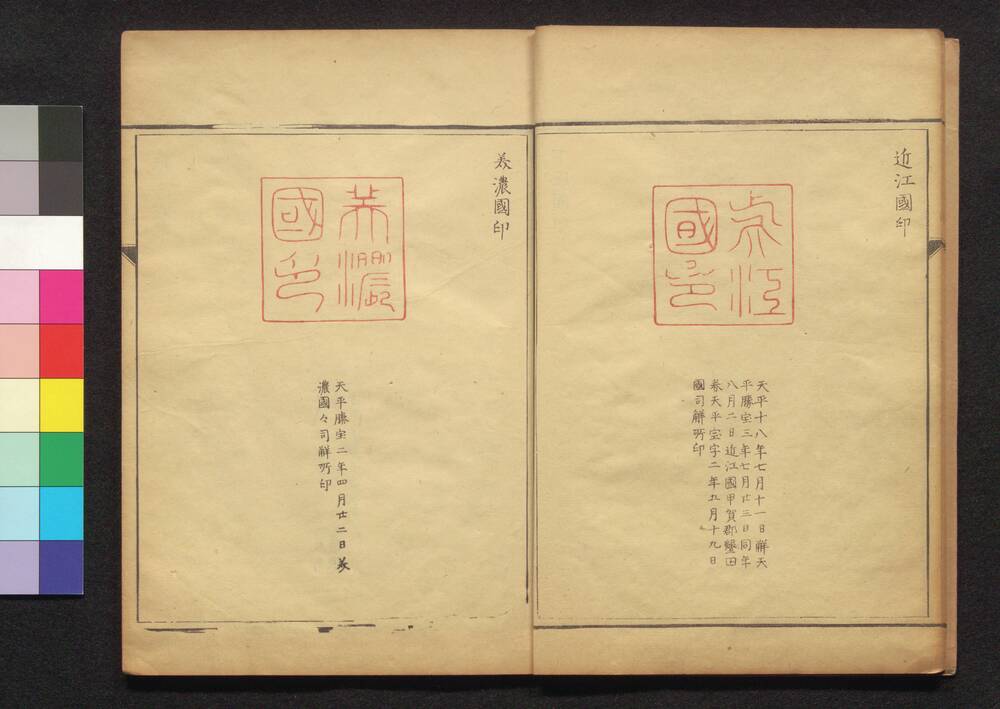 近江國印
近江
國印
天平十八年七月十一日解天
平勝宝三年七月廿三日同年
八月二日近江國甲賀郡墾田
卷天平宝字二年九月十九日
國司解所印
美濃國印
美濃
國印
天平勝宝二年四月廿二日美
濃國々司解所印